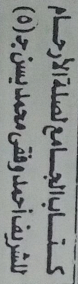 كتاب الجامع لصلة الأرحام
للشريف أحمد وفقى محمد يسن ج (٥)